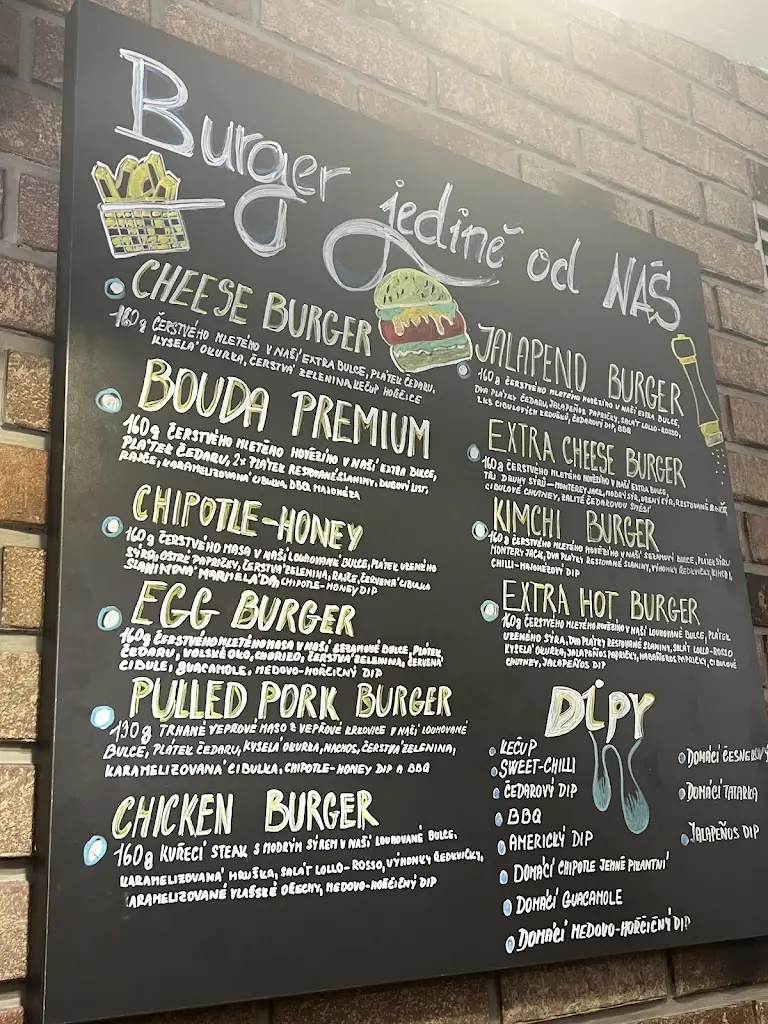 Burger jedině od NÁS
CHEESE BURGER
160g ČERSTVÉHO MLETÉHO V NAŠÍ EXTRA BULCE, PLÁTEK ČEDARU,
KYSELÁ OKURKA, ČERSTVÁ ZELENINA, KEČUP HOŘČICE
BOUDA PREMIUM
160g ČERSTVÉHO MLETÉHO HOVĚZÍHO V NAŠÍ EXTRA BULCE,
PLÁTEK ČEDARU, 2x PLÁTEK RESTOVANÉ SLANINY, DUBOVÝ LIST,
RAJČE, KARAMELIZOVANÁ CIBULKA, BBQ MAJONÉZA
CHIPOTLE-HONEY
160g ČERSTVÉHO MASA V NAŠÍ LOUHOVANÉ BULCE, PLÁTEK UZENÉHO
SÝRA, OSTRÉ PAPRIČKY, ČERSTVÁ ZELENINA, RAJČE, ČERVENÁ CIBULKA
SLANINOVÁ MARMELÁDA, CHIPOTLE-HONEY DIP
EGG BURGER
160g ČERSTVÉHO MLETÉHO MASA V NAŠÍ SEZAMOVÉ BULCE, PLÁTEK
ČEDARU, VOLSKÉ OKO, CHORIZO, ČERSTVÁ ZELENINA, ČERVENÁ
CIBULE, GUACAMOLE, MEDOVO-HOŘČIČNÝ DIP
PULLED PORK BURGER
130g TRHANÉ VEPŘOVÉ MASO Z VEPŘOVÉ KRKOVICE V NAŠÍ LOUHOVANÉ
BULCE, PLÁTEK ČEDARU, KYSELÁ OKURKA, NACHOS, ČERSTVÁ ZELENINA,
KARAMELIZOVANÁ CIBULKA, CHIPOTLE-HONEY DIP A BBQ
CHICKEN BURGER
160g KUŘECÍ STEAK S MODRÝM SÝREM V NAŠÍ LOUHOVANÉ BULCE,
KARAMELIZOVANÁ HRUŠKA, SALÁT LOLLO-ROSSO, VÝHONKY ŘEDKVIČKY,
KARAMELIZOVANÉ VLAŠSKÉ OŘECHY, MEDOVO-HOŘČIČNÝ DIP
JALAPENO BURGER
160g ČERSTVÉHO MLETÉHO HOVĚZÍHO V NAŠÍ EXTRA BULCE,
DVA PLÁTKY ČEDARU, JALAPEÑOS PAPRIČKY, SALÁT LOLLO-ROSSO,
2KS CIBULOVÝCH KROUŽKŮ, ČEDAROVÝ DIP, BBQ
EXTRA CHEESE BURGER
160g ČERSTVÉHO MLETÉHO HOVĚZÍHO V NAŠÍ EXTRA BULCE,
TŘI DRUHY SÝRŮ - MONTEREY JACK, MODRÝ SÝR, UZENÝ SÝR, RESTOVANÉ
CIBULOVÉ CHUTNEY, ZALITÉ ČEDAROVOU SMĚSÍ
KIMCHI BURGER
160g ČERSTVÉHO MLETÉHO HOVĚZÍHO V NAŠÍ SEZAMOVÝ BULCE, PLÁTEK SÝRU
MONTERY JACK, DVA PLÁTKY RESTOVANÉ SLANINY, VÝHONKY ŘEDKVIČKY, KIMCHI,
CHILLI-MAJONÉZOVÝ DIP
EXTRA HOT BURGER
160g ČERSTVÉHO MLETÉHO HOVĚZÍHO V NAŠÍ LOUHOVANÉ BULCE, PLÁTEK
UZENÉHO SÝRA, DVA PLÁTKY RESTOVANÉ SLANINY, SALÁT LOLLO-ROSSO
KYSELÁ OKURKA, JALAPEÑOS PAPRIČKY, HABAÑEROS PAPRIČKY, CIBULOVÉ
CHUTNEY, JALAPEÑOS DIP
DIPY
KEČUP
SWEET-CHILLI
ČEDAROVÝ DIP
BBQ
AMERICKÝ DIP
DOMÁCÍ CHIPOTLE JEMNĚ PIKANTNÍ
DOMÁCÍ GUACAMOLE
DOMÁCÍ MEDOVO-HOŘČIČNÝ DIP
DOMÁCÍ ČESNEKOVÝ
DOMÁCÍ TATARKA
JALAPEÑOS DIP